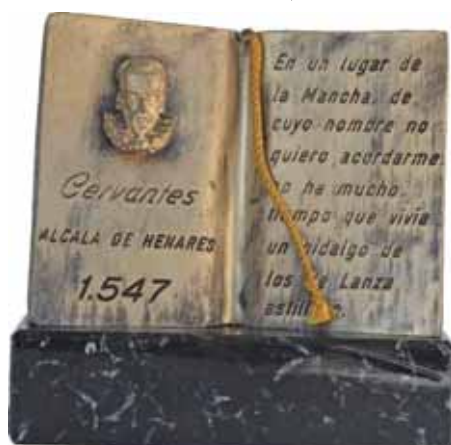 Cervantes
ALCALA DE HENARES
1.547
En un lugar de
la Mancha, de
cuyo nombre no
quiero acordarme,
no ha mucho
tiempo que vivía
un hidalgo de
los de Lanza